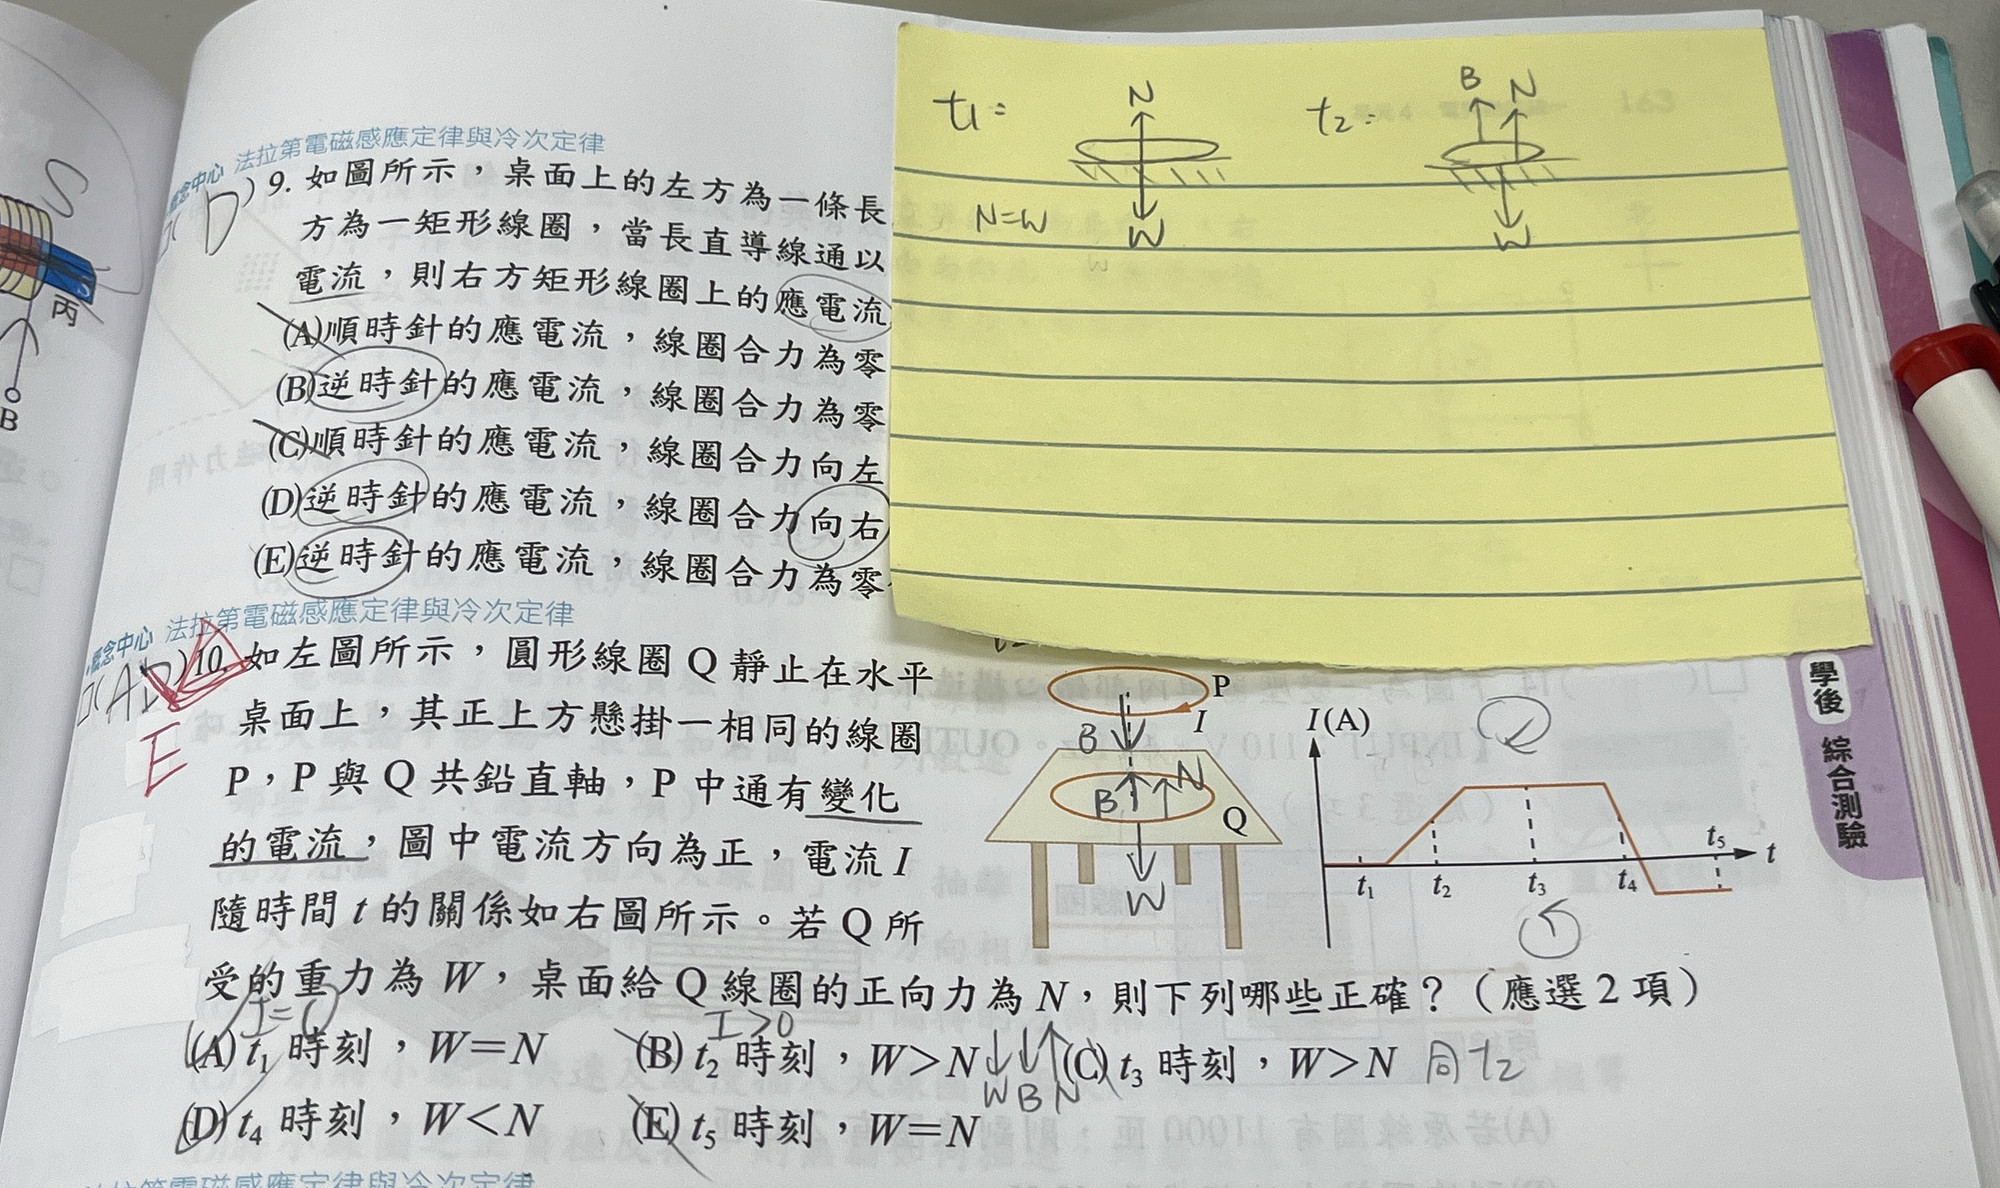 S
丙
B
t₁= N
N=W W
t₂= B N
W
概念中心 法拉第電磁感應定律與冷次定律
( D ) 9. 如圖所示，桌面上的左方為一條長
方為一矩形線圈，當長直導線通以
電流，則右方矩形線圈上的應電流
(A)順時針的應電流，線圈合力為零
(B)逆時針的應電流，線圈合力為零
(C)順時針的應電流，線圈合力向左
(D)逆時針的應電流，線圈合力向右
(E)逆時針的應電流，線圈合力為零
概念中心 法拉第電磁感應定律與冷次定律
(AD) 10. 如左圖所示，圓形線圈 Q 靜止在水平
E
桌面上，其正上方懸掛一相同的線圈
P，P 與 Q 共鉛直軸，P 中通有變化
的電流，圖中電流方向為正，電流 I
隨時間 t 的關係如右圖所示。若 Q 所
受的重力為 W，桌面給 Q 線圈的正向力為 N，則下列哪些正確？（應選 2 項）
P
I
B
B N
Q
W
I(A)
t₁ t₂ t₃ t₄ t₅ t
I=0
(A) t₁ 時刻，W=N
I>0
(B) t₂ 時刻，W>N
W B N
(C) t₃ 時刻，W>N 同 t₂
(D) t₄ 時刻，W<N
(E) t₅ 時刻，W=N
法拉第電磁感應定律與冷次定律
學後 綜合測驗